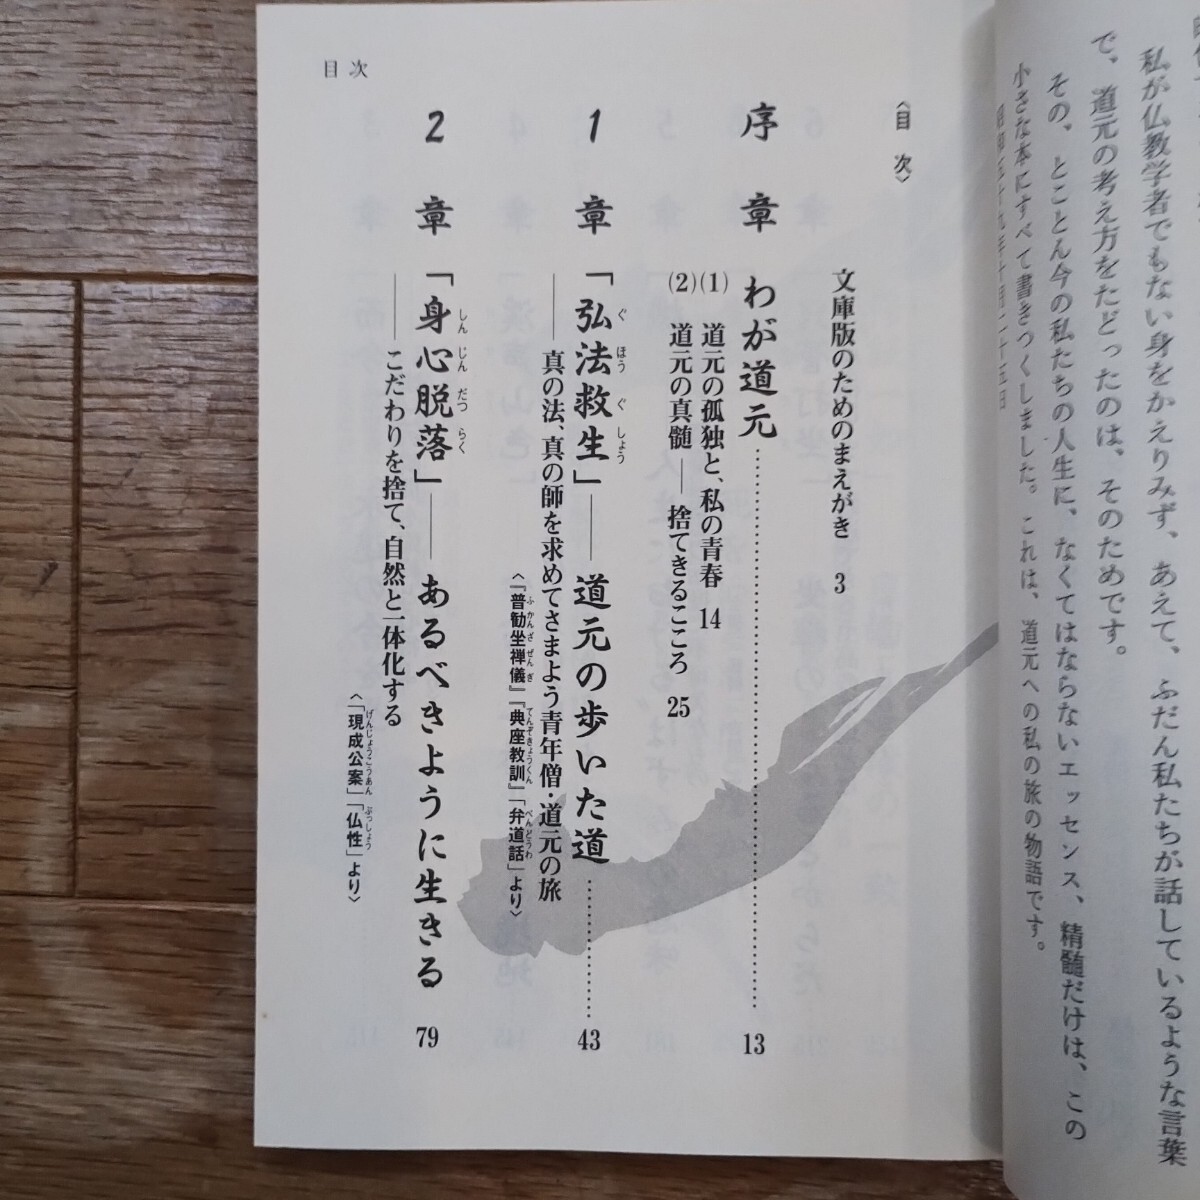 私が仏教学者でもない身をかえりみず、あえて、ふだん私たちが話しているような言葉
で、道元の考え方をたどったのは、そのためです。
その、とことん今の私たちの人生に、なくてはならないエッセンス、精髄だけは、この
小さな本にすべて書きつくしました。これは、道元への私の旅の物語です。
昭和五十九年十月二十五日
目次
〈目次〉
文庫版のためのまえがき 3
序章 わが道元 13
(1) 道元の孤独と、私の青春 14
(2) 道元の真髄――捨てきるこころ 25
1章 「弘法救生」――道元の歩いた道 43
ぐ ほう ぐ しょう
――真の法、真の師を求めてさまよう青年僧・道元の旅
〈『普勧坐禅儀』『典座教訓』「弁道話」より〉
ふかんざぜんぎ てんぞきょうくん べんどうわ
2章 「身心脱落」――あるべきように生きる 79
しん じん だつ らく
――こだわりを捨て、自然と一体化する
〈「現成公案」「仏性」より〉
げんじょうこうあん ぶっしょう